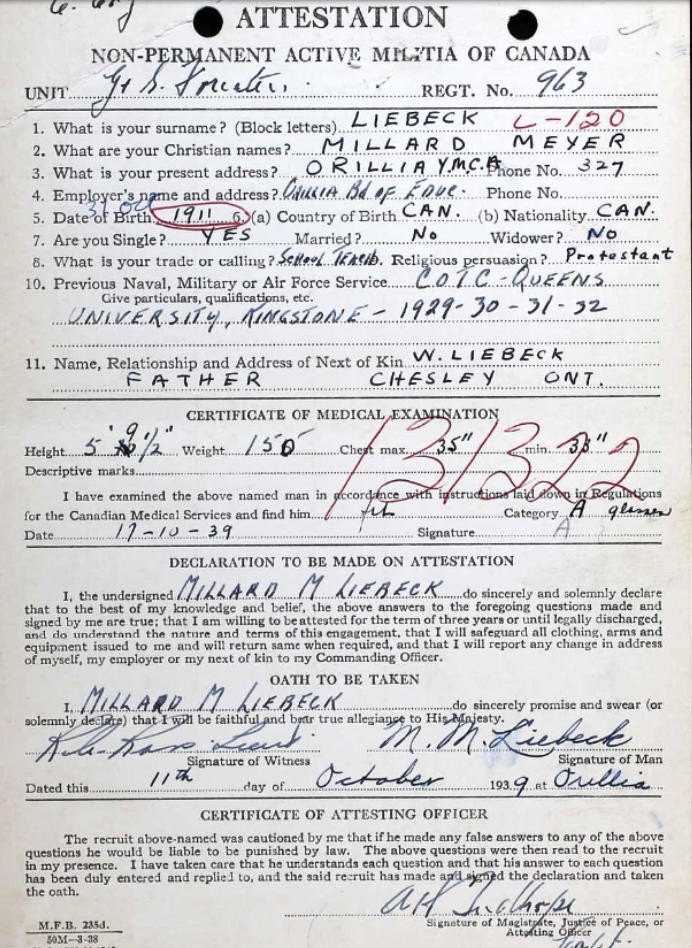 ATTESTATION
NON-PERMANENT ACTIVE MILITIA OF CANADA
UNIT REGT. No. 963
1. What is your surname? (Block letters) LIEBECK L-120
2. What are your Christian names? MILLARD MEYER
3. What is your present address? ORILLIA Y.M.C.A Phone No. 327
4. Employer's name and address? ORILLIA Bd of EDUC. Phone No.
31 Oct
5. Date of Birth 1911 6. (a) Country of Birth CAN. (b) Nationality CAN.
7. Are you Single? YES Married? NO Widower? NO
8. What is your trade or calling? SCHOOL TEACH. Religious persuasion? Protestant
10. Previous Naval, Military or Air Force Service COTC-QUEENS
Give particulars, qualifications, etc.
UNIVERSITY, KINGSTONE - 1929-30-31-32
11. Name, Relationship and Address of Next of Kin W. LIEBECK
FATHER CHESLEY ONT.
CERTIFICATE OF MEDICAL EXAMINATION
131322
Height 5' 9 1/2" Weight 150 Chest max. 35" min. 33"
Descriptive marks
I have examined the above named man in accordance with instructions laid down in Regulations
for the Canadian Medical Services and find him fit Category A glasses
Date 17-10-39 Signature A
DECLARATION TO BE MADE ON ATTESTATION
I, the undersigned MILLARD M LIEBECK do sincerely and solemnly declare
that to the best of my knowledge and belief, the above answers to the foregoing questions made and
signed by me are true; that I am willing to be attested for the term of three years or until legally discharged,
and do understand the nature and terms of this engagement, that I will safeguard all clothing, arms and
equipment issued to me and will return same when required, and that I will report any change in address
of myself, my employer or my next of kin to my Commanding Officer.
OATH TO BE TAKEN
I, MILLARD M LIEBECK do sincerely promise and swear (or
solemnly declare) that I will be faithful and bear true allegiance to His Majesty.
M. M. Liebeck
Signature of Witness Signature of Man
Dated this 11th day of October 1939 at Orillia
CERTIFICATE OF ATTESTING OFFICER
The recruit above-named was cautioned by me that if he made any false answers to any of the above
questions he would be liable to be punished by law. The above questions were then read to the recruit
in my presence. I have taken care that he understands each question and that his answer to each question
has been duly entered and replied to, and the said recruit has made and signed the declaration and taken
the oath.
Signature of Magistrate, Justice of Peace, or
Attesting Officer
M.F.B. 235d.
50M-3-38